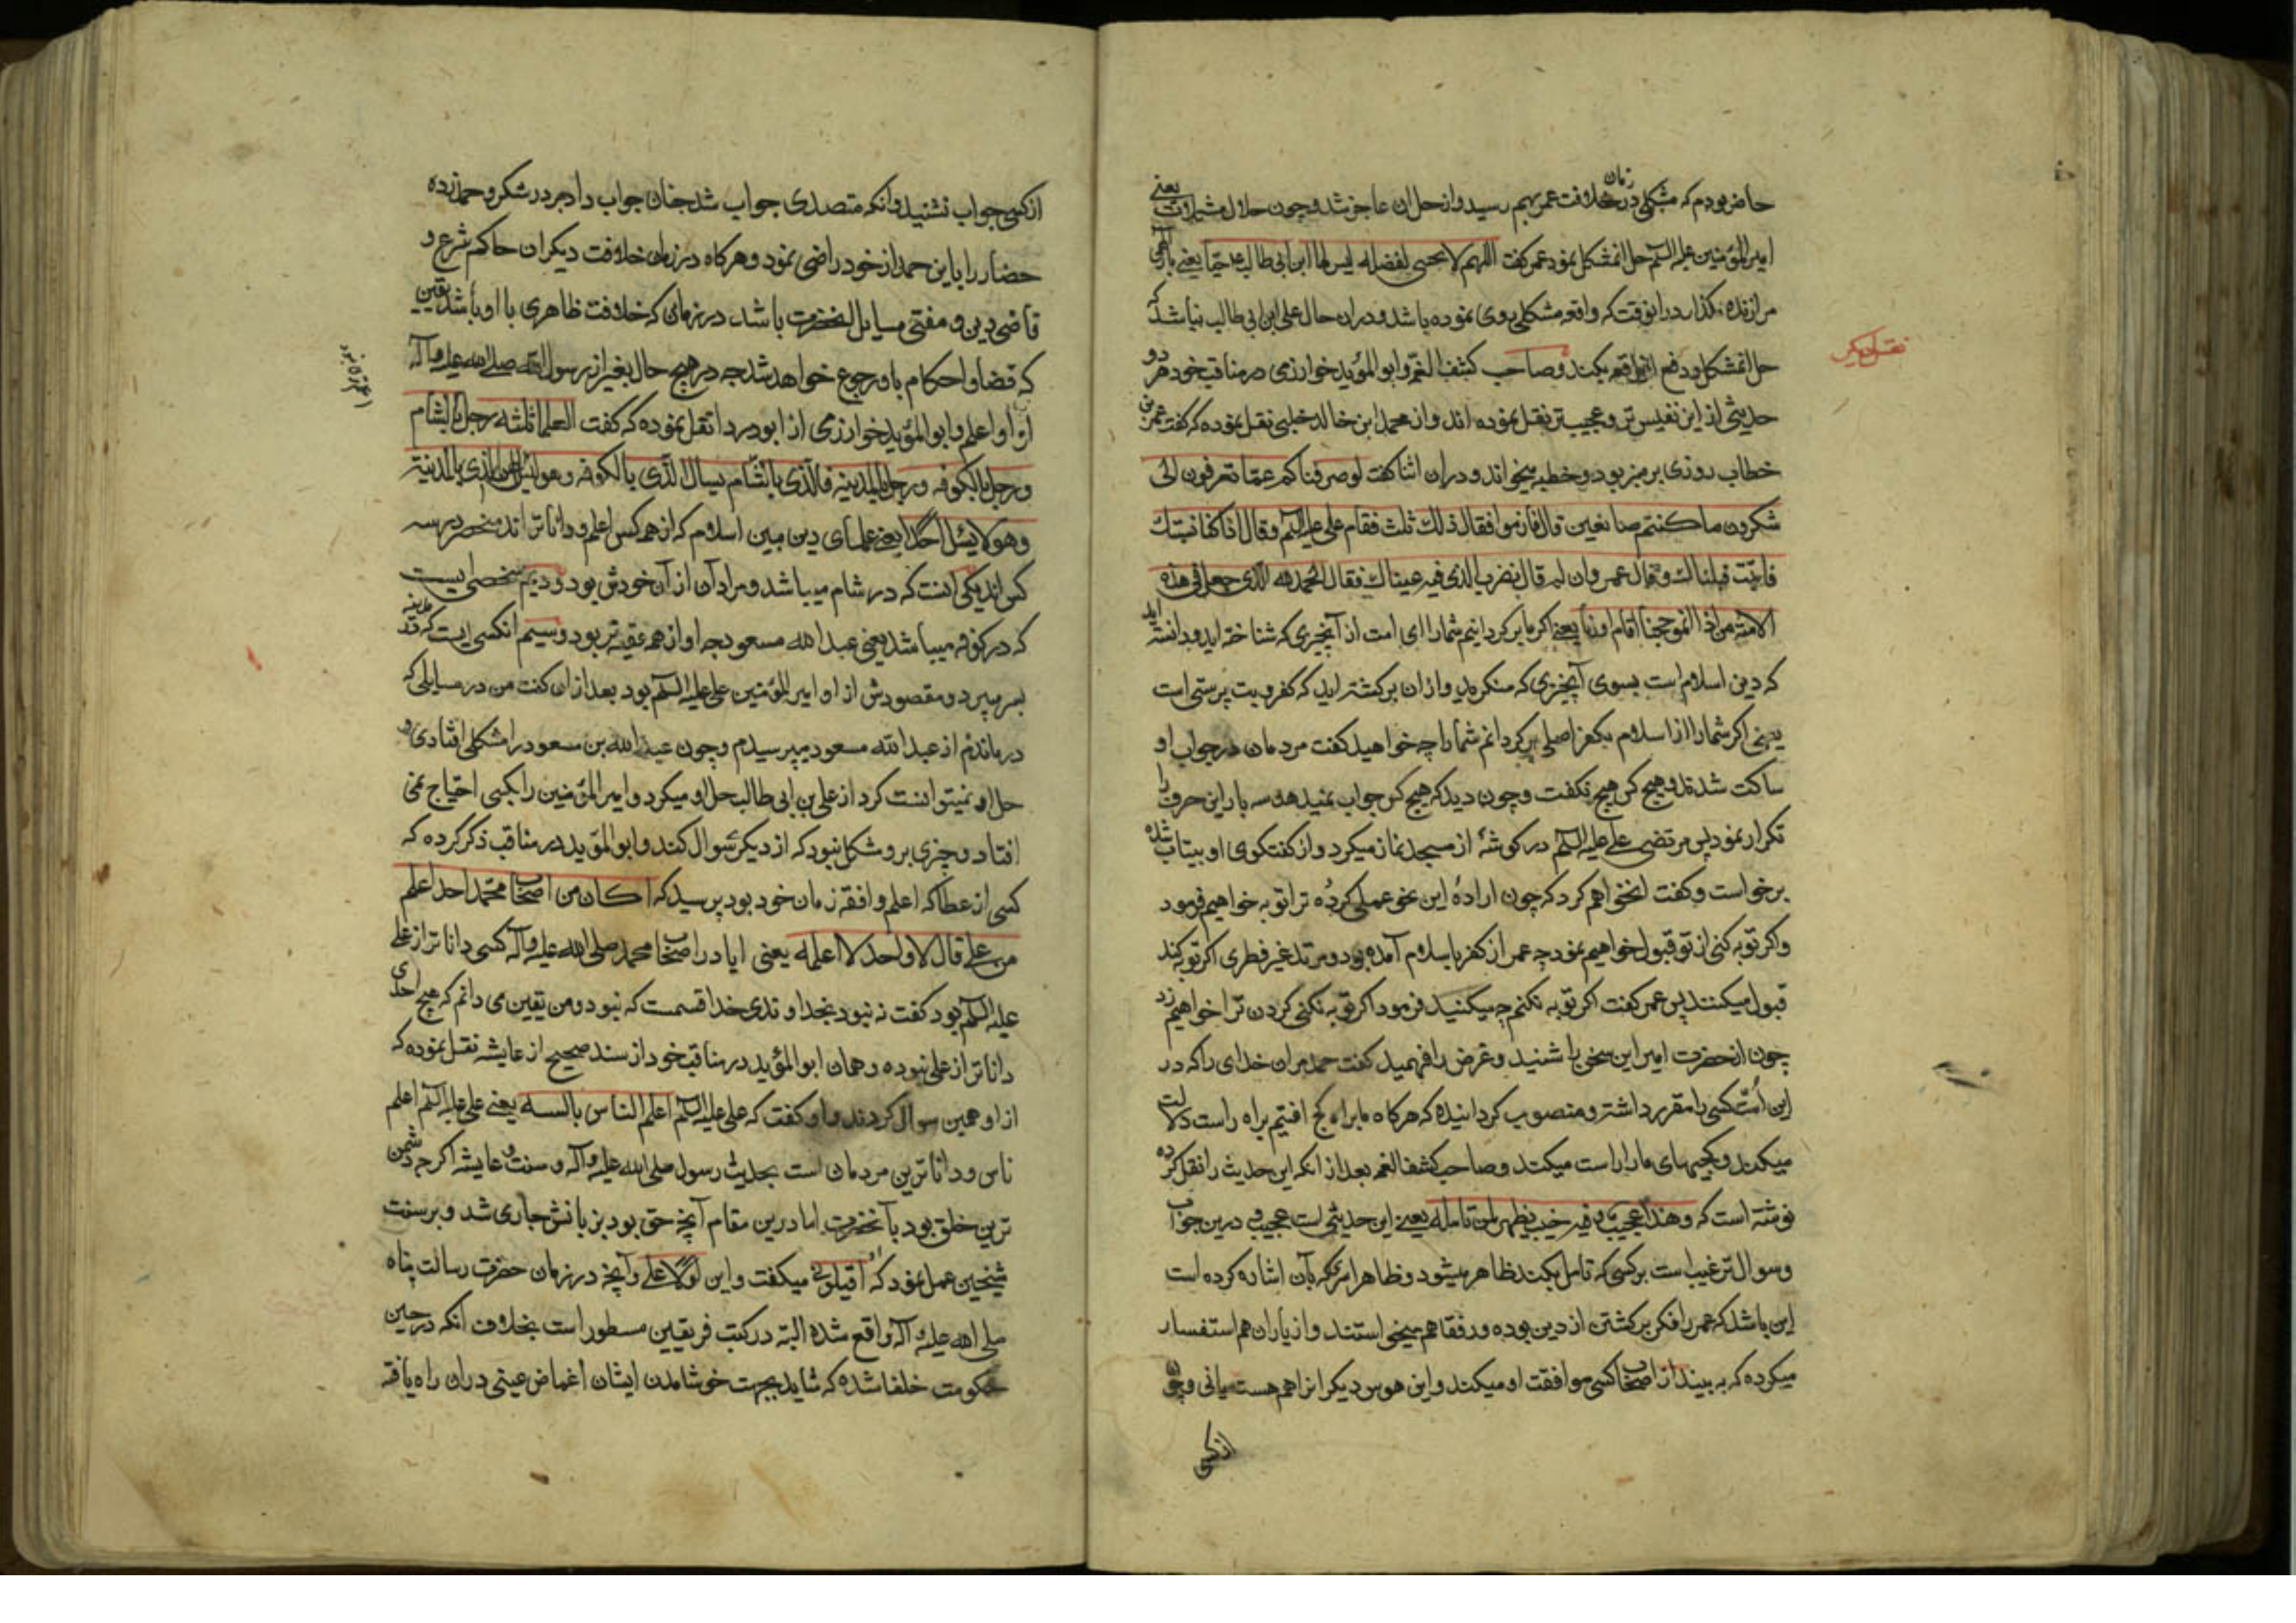 حاضر بودم که مشکلی در زمان خلافت عمر بهم رسید و از حل ان عاجز شد و چون حلال مشکلات یعنی
امیر المؤمنین علیه السلم حل انمشکل نمود عمر کفت اللهم لا تبقنی لمعضلة لیس لها ابن ابی طالب حیا یعنی بار الهی
مرا زنده نگذار در انوقت که واقعه مشکلی روی نموده باشد و دران حال علی ابن ابی طالب نباشد که
حل انمشکل و دفع ان واقعه بکند و صاحب کشف الغمه و ابو المؤید خوارزمی در مناقب خود هر دو
نقل دیکر
حدیثی از این نفیس تر و عجیب تر نقل نموده اند و از محمد ابن خالد نقل نموده که کفت عمر بن
خطاب روزی بر منبر بود و خطبه میخواند و دران اثنا کفت لو صرفناکم عما تعرفون الی
شکرون ما کنتم صانعین قال فازموا فقال ذلک ثلث فقام علی علیه السلم و قال اذا کنا نستتیبک
فان تبت قبلناک و قال عمر و ان لم قال نضرب الذی فیه عیناک فقال الحمد لله الذی جعل فی هذه
الامة من اذا اعوججنا اقام اودنا یعنی اکر ما برکردانیم شما را ای امت از آنچیزی که شناخته اید و دانسته اید
که دین اسلام است بسوی آنچیزی که منکر بدید و ازان برکشته اید که کفر و بت پرستی است
یعنی اکر شما را از اسلام بکفر اصلی برکردانم شما را چه خواهید کفت مردمان در جواب او
ساکت شدند و هیچ کس هیچ نکفت و چون دید که هیچ کس جواب نمیدهد سه بار این حرف را
تکرار نمود پس مرتضی علی علیه السلم در کوشهٔ از مسجد نماز میکرد و از کفتکوی او بیتاب شده
برخواست و کفت که چون ارادهٔ این نحو عملی کردهٔ ترا توبه خواهیم فرمود
و اکر توبه کنی از تو قبول خواهیم نمود چه عمر از کفر باسلام آمده بود و مرتد غیر فطری اکر توبه کند
قبول میکنند پس عمر کفت اکر توبه نکنم چه میکنید فرمود اکر توبه نکنی کردن ترا خواهیم زد
چون انحضرت امیر این سخن را شنید و غرض را فهمید کفت حمد مران خدای را که در
این امت کسی را مقرر داشته و منصوب کردانیده که هرکاه ما براه کج افتیم براه راست دلالت
میکند و کجیهای ما را راست میکند و صاحب کشف الغمه بعد از انکه این حدیث را نقل کرده
نوشته است که و هذا عجیب و فیه خب یظهر لمن تامله یعنی این حدیثی است عجیب و درین جواب
و سوال ترغیب است برکسی که تامل بکند ظاهر میشود و ظاهرا مرتکه بآن اشاره کرده است
این باشد که عمر را فکر برکشتن از دین بوده و رفقا هم میخواستند و از یاران هم استفسار
میکرده که به بیند از اصحاب کسی موافقت او میکند و این هوس دیکرانرا هم هست یا نی و چون
از کسی
از کسی جواب نشنید و انکه متصدی جواب شد چنان جواب داد در شکر و حمد زده
حضار را باین حمد از خود راضی نمود و هرکاه در زمان خلافت دیکران حاکم شرع و
قاضی دین و مفتی مسایل انحضرت باشد در زمانی که خلافت ظاهری با او باشد یقین
که قضا و احکام باو رجوع خواهد شد چه در هیچ حال بغیر از رسول الله صلی الله علیه و آله
از او اعلم و ابو المؤید خوارزمی از ابو دردا نقل نموده که کفت العلما ثلثه رجل بالشام
و رجل بالکوفه و رجل بالمدینه فالذی بالشام یسال الذی بالکوفه و هو یسئل الذی بالمدینة
و هو لا یسئل احدا یعنی علمای دین مبین اسلام که از همه کس اعلم و داناتر اند منحصر در سه
کس اند یکی انست که در شام میباشد و مراد آن از آن خودش بود و دویم شخصی ایست
که در کوفه میباشد یعنی عبد الله مسعود چه او از همه فقیه تر بود و سیم انکسی ایست که در مدینه
بسر میبرد و مقصودش از او امیر المؤمنین علی علیه السلم بود بعد ازان کفت من در مسایلی که
درماندم از عبد الله مسعود میپرسیدم و چون عبد الله بن مسعود را مشکلی افتادی و
حل او نمیتوانست کرد از علی بن ابی طالب حل او میکرد و امیر المؤمنین را بکسی احتیاج نمی
افتاد و چیزی برو مشکل نبود که از دیکری سوال کند و ابو المؤید در مناقب ذکر کرده که
کسی از عطا که اعلم و افقه زمان خود بود پرسید که ا کان من اصحاب محمد احد اعلم
من علی قال لا و لحد لا اعلمه یعنی ایا در اصحاب محمد صلی الله علیه و آله کسی داناتر از علی
علیه السلم بود کفت نه نبود بخداوندی خدا قسمست که نبود و من یقین می دانم که هیچ احدی
داناتر از علی نبوده و همان ابو المؤید در مناقب خود از سند صحیح از عایشه نقل نموده که
از او همین سوال کردند و او کفت که علی علیه السلم اعلم الناس بالسنه یعنی علی علیه السلم اعلم
ناس و داناترین مردمان است بحدیث رسول صلی الله علیه و آله و سنت و عایشه اکرچه دشمن
ترین خلق بود بآنحضرت اما درین مقام آنچه حق بود بزبانش جاری شد و بر سنت
شیخین عمل نمود که اقیلونی میکفت و این لولا علی و آنچه در زمان حضرت رسالت پناه
صلی الله علیه و آله واقع شده البته در کتب فریقین مسطور است بخلاف انکه در حین
حکومت خلفا شده که شاید بجهت خوشامدن ایشان اغماض عینی دران راه یافته